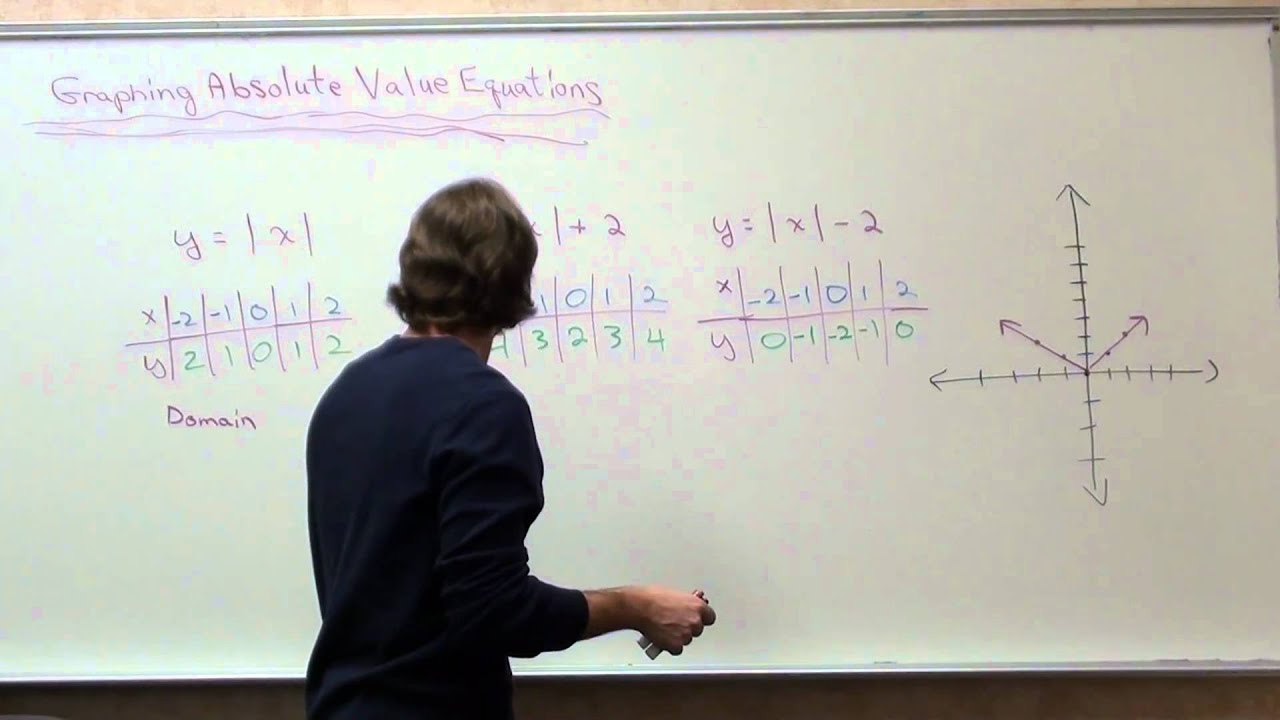 Graphing Absolute Value Equations
y = |x|
| + 2
y = |x| - 2
x -2 -1 0 1 2
y 2 1 0 1 2
1 0 1 2
3 2 3 4
x -2 -1 0 1 2
y 0 -1 -2 -1 0
Domain